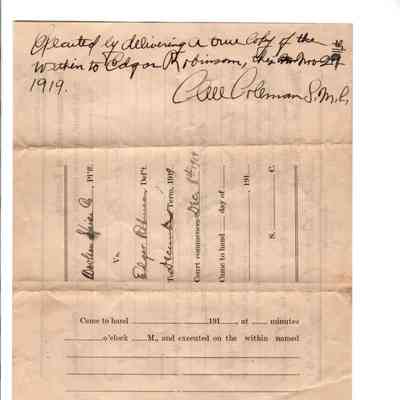 Executed by delivering a true copy of the
within to Edgar Robinson, this Nov 29
1919.
Coleman S.M.C.
Plff.
Vs.
Edgar Robinson Deft.
Term, 1919
Court commences Dec 8th 1919
Came to hand day of
191
S. C.
Came to hand 191 , at minutes
o'clock M., and executed on the within named